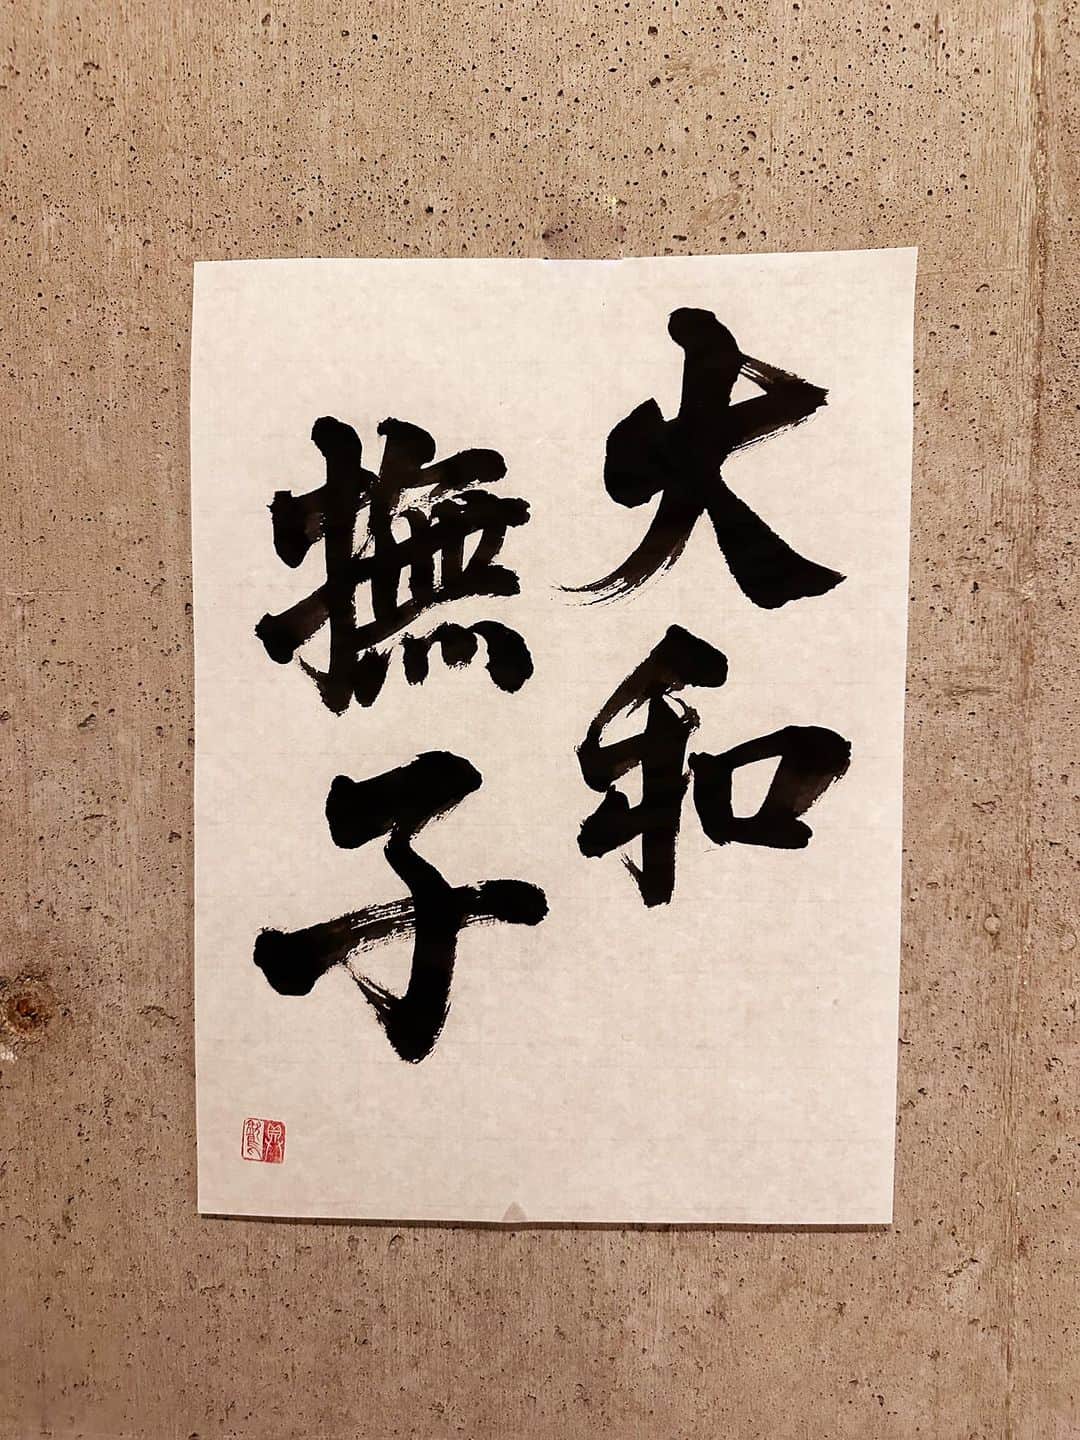 大和
撫子